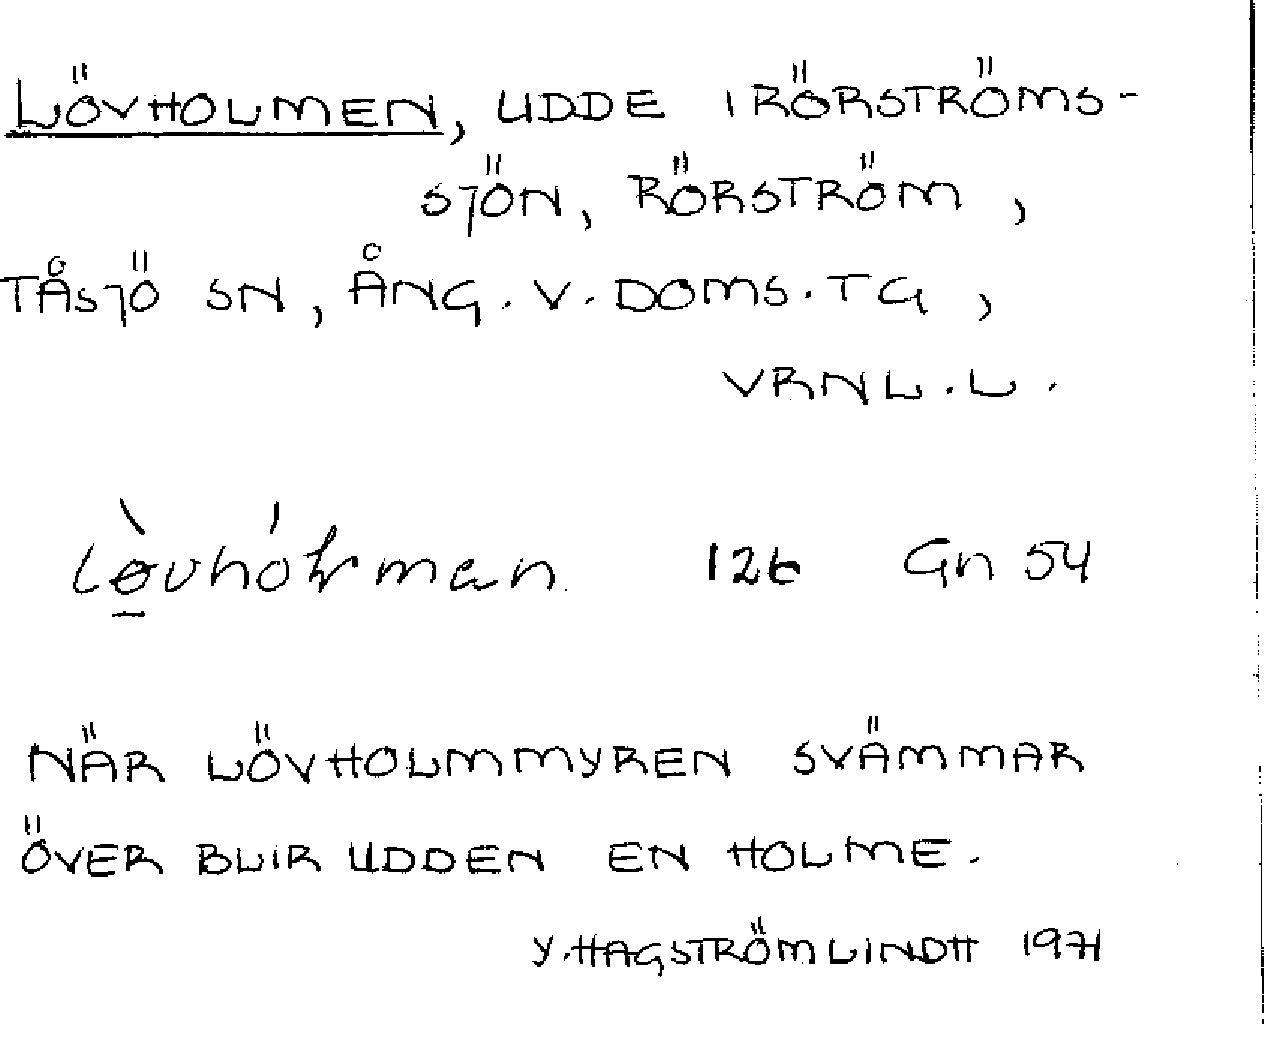 LÖVHOLMEN, UDDE I RÖRSTRÖMS-
SJÖN, RÖRSTRÖM,
TÅSJÖ SN, ÅNG. V. DOMS. TG,
VRNL. L.
12b Gn 54
NÄR LÖVHOLMMYREN SVÄMMAR
ÖVER BLIR UDDEN EN HOLME.
Y. HAGSTRÖM LINDH 1971